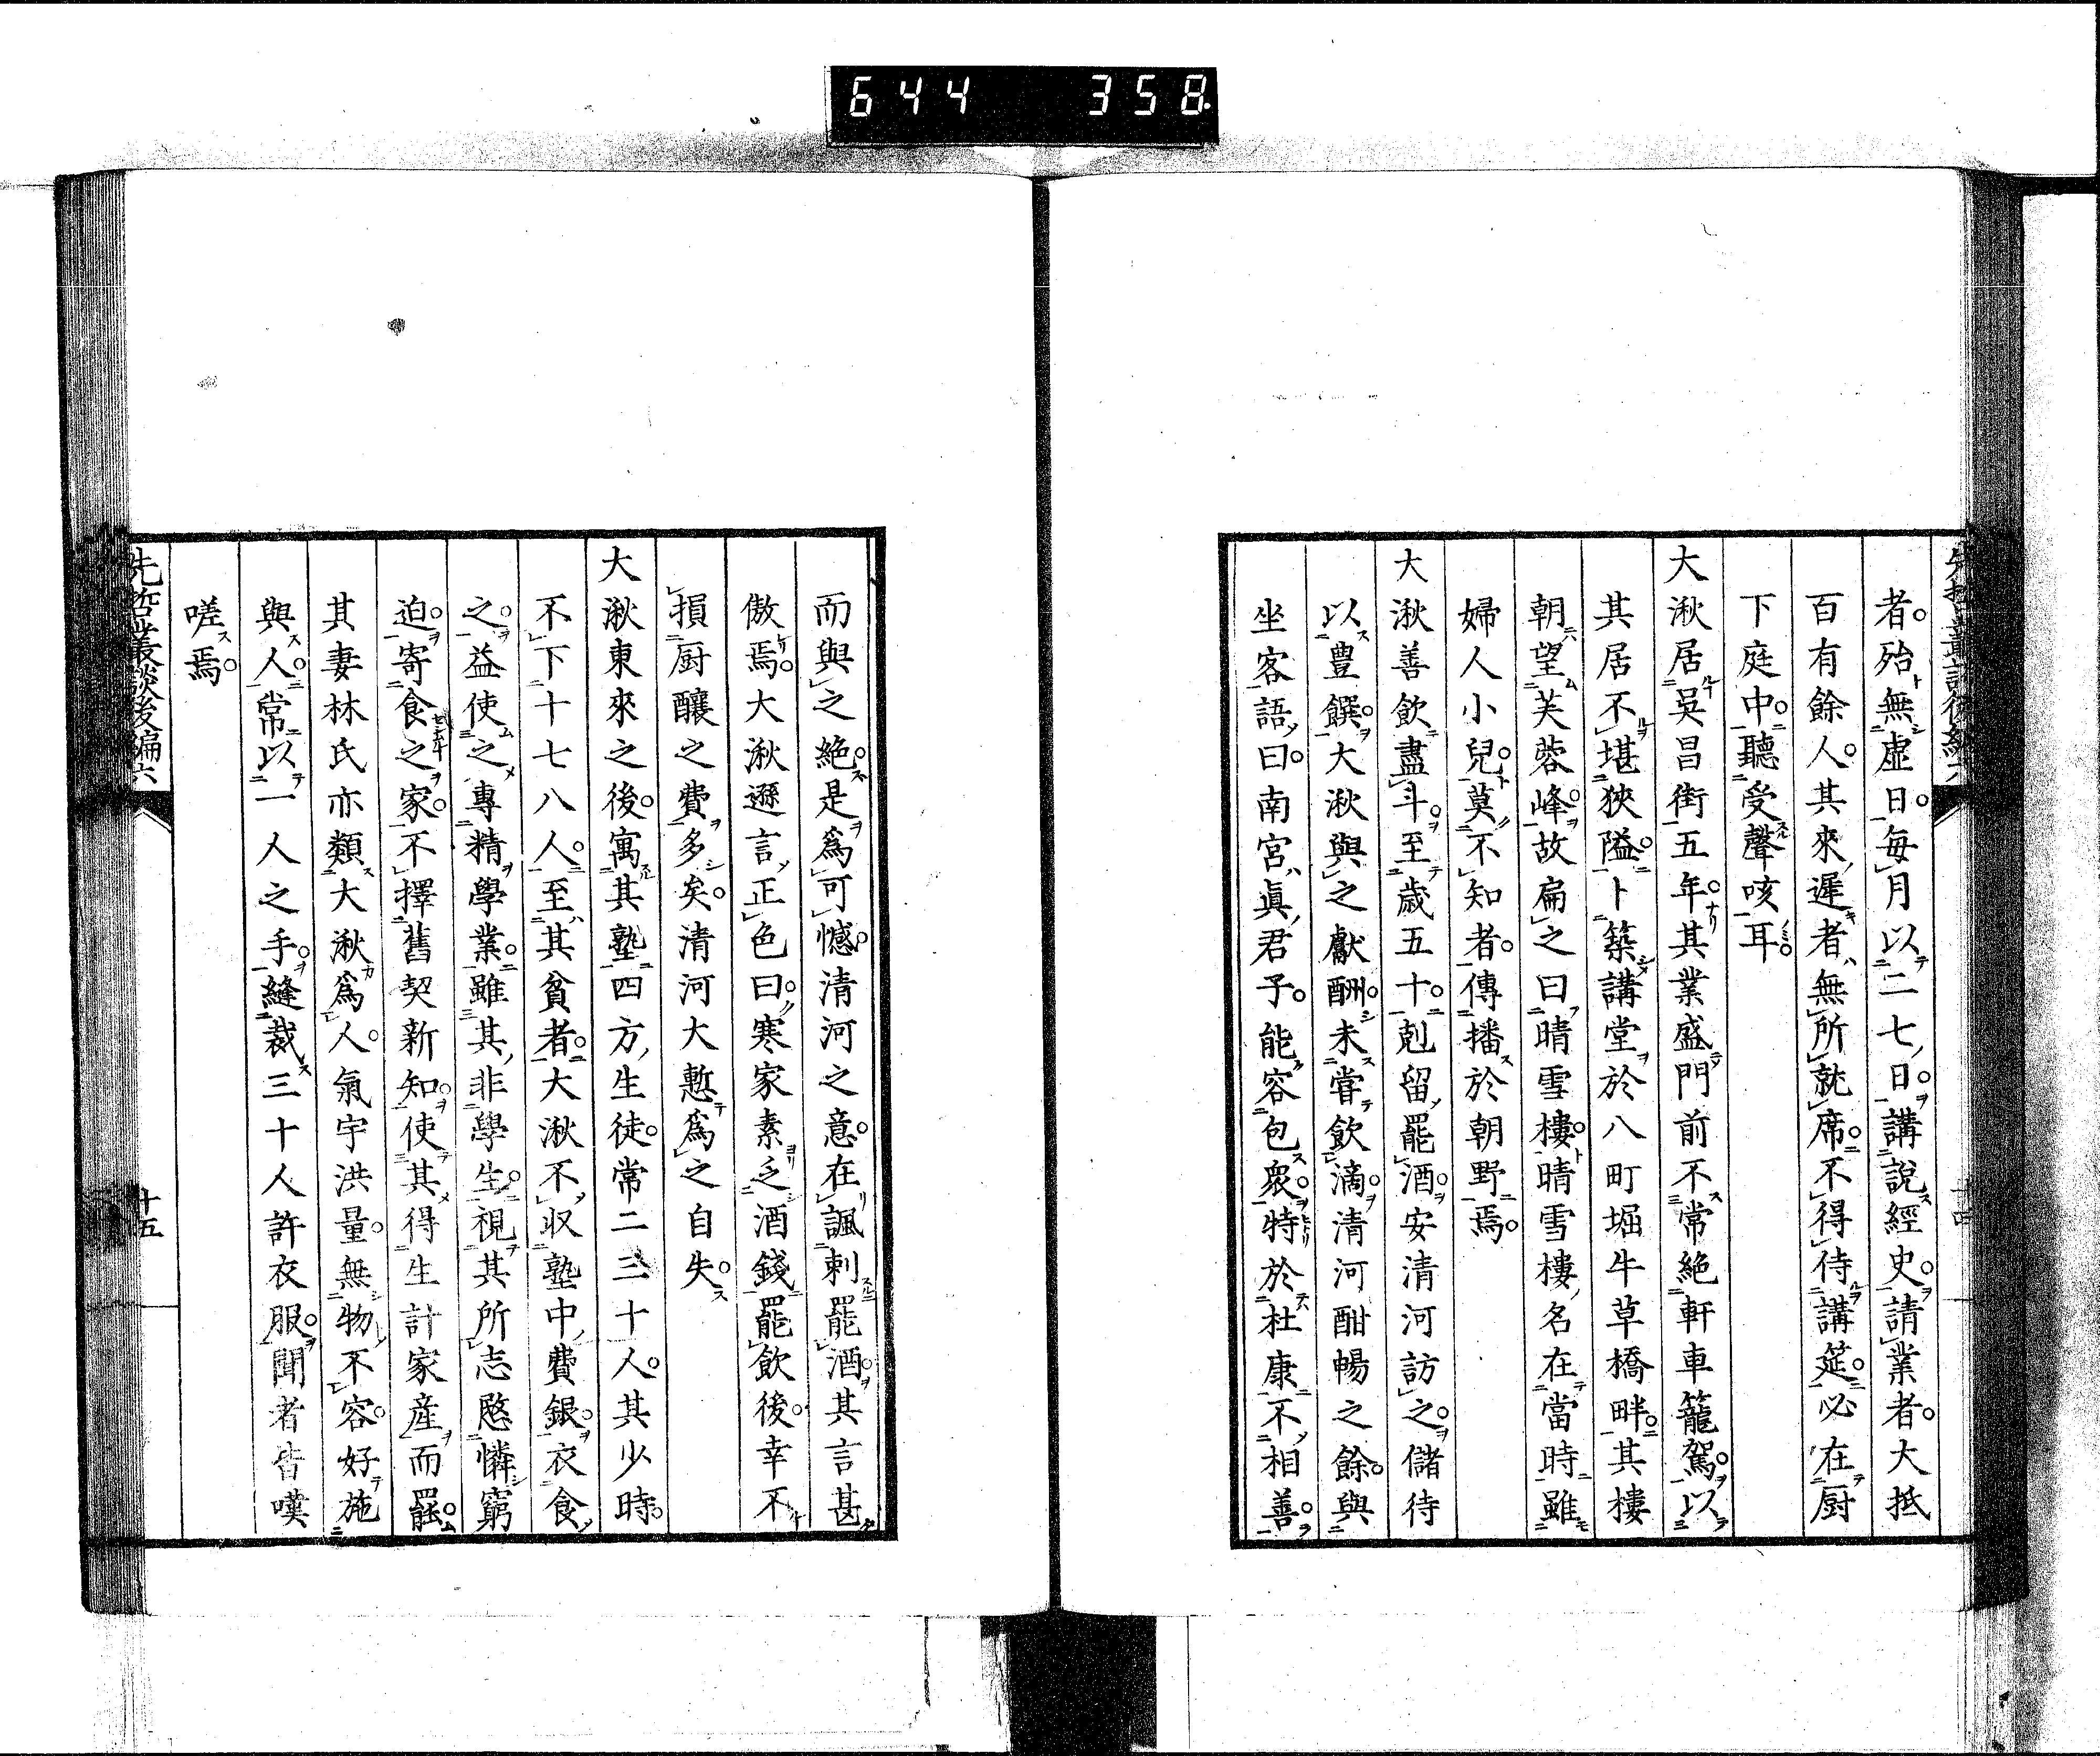 644 358
者殆無虛日每月以二七日講說經史請業者大抵
百有餘人其來遲者無所就席不得待講筵必在厨
下庭中聽受聲咳耳
大湫居吳昌街五年其業盛門前不常絶軒車籠駕以
其居不堪狹隘卜築講堂於八町堀牛草橋畔其樓
朝望芙蓉峰故扁之曰晴雪樓晴雪樓名在當時雖
婦人小兒莫不知者傳播於朝野焉
大湫善飲盡斗至歳五十剋留罷酒安清河訪之儲待
以豊饌大湫與之獻酬未嘗飲滴清河酣暢之餘與
坐客語曰南宮眞君子能容包衆特於杜康不相善
而與之絶是爲可憾清河之意在諷刺罷酒其言甚
傲焉大湫遜言正色曰寒家素乏酒錢罷飲後幸不
損厨釀之費多矣清河大慙爲之自失
大湫東來之後寓其塾四方生徒常二三十人其少時
不下十七八人至其貧者大湫不収塾中費銀衣食
之益使之專精學業雖其非學生視其所志愍憐窮
迫寄食之家不擇舊契新知使其得生計家産而罷
其妻林氏亦類大湫爲人氣宇洪量無物不容好施
與人常以一人之手縫裁三十人許衣服聞者皆嘆
嗟焉
先哲叢談後編六
十五